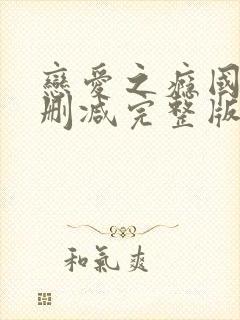 戀愛之癮國
刪減完整版
和氣爽